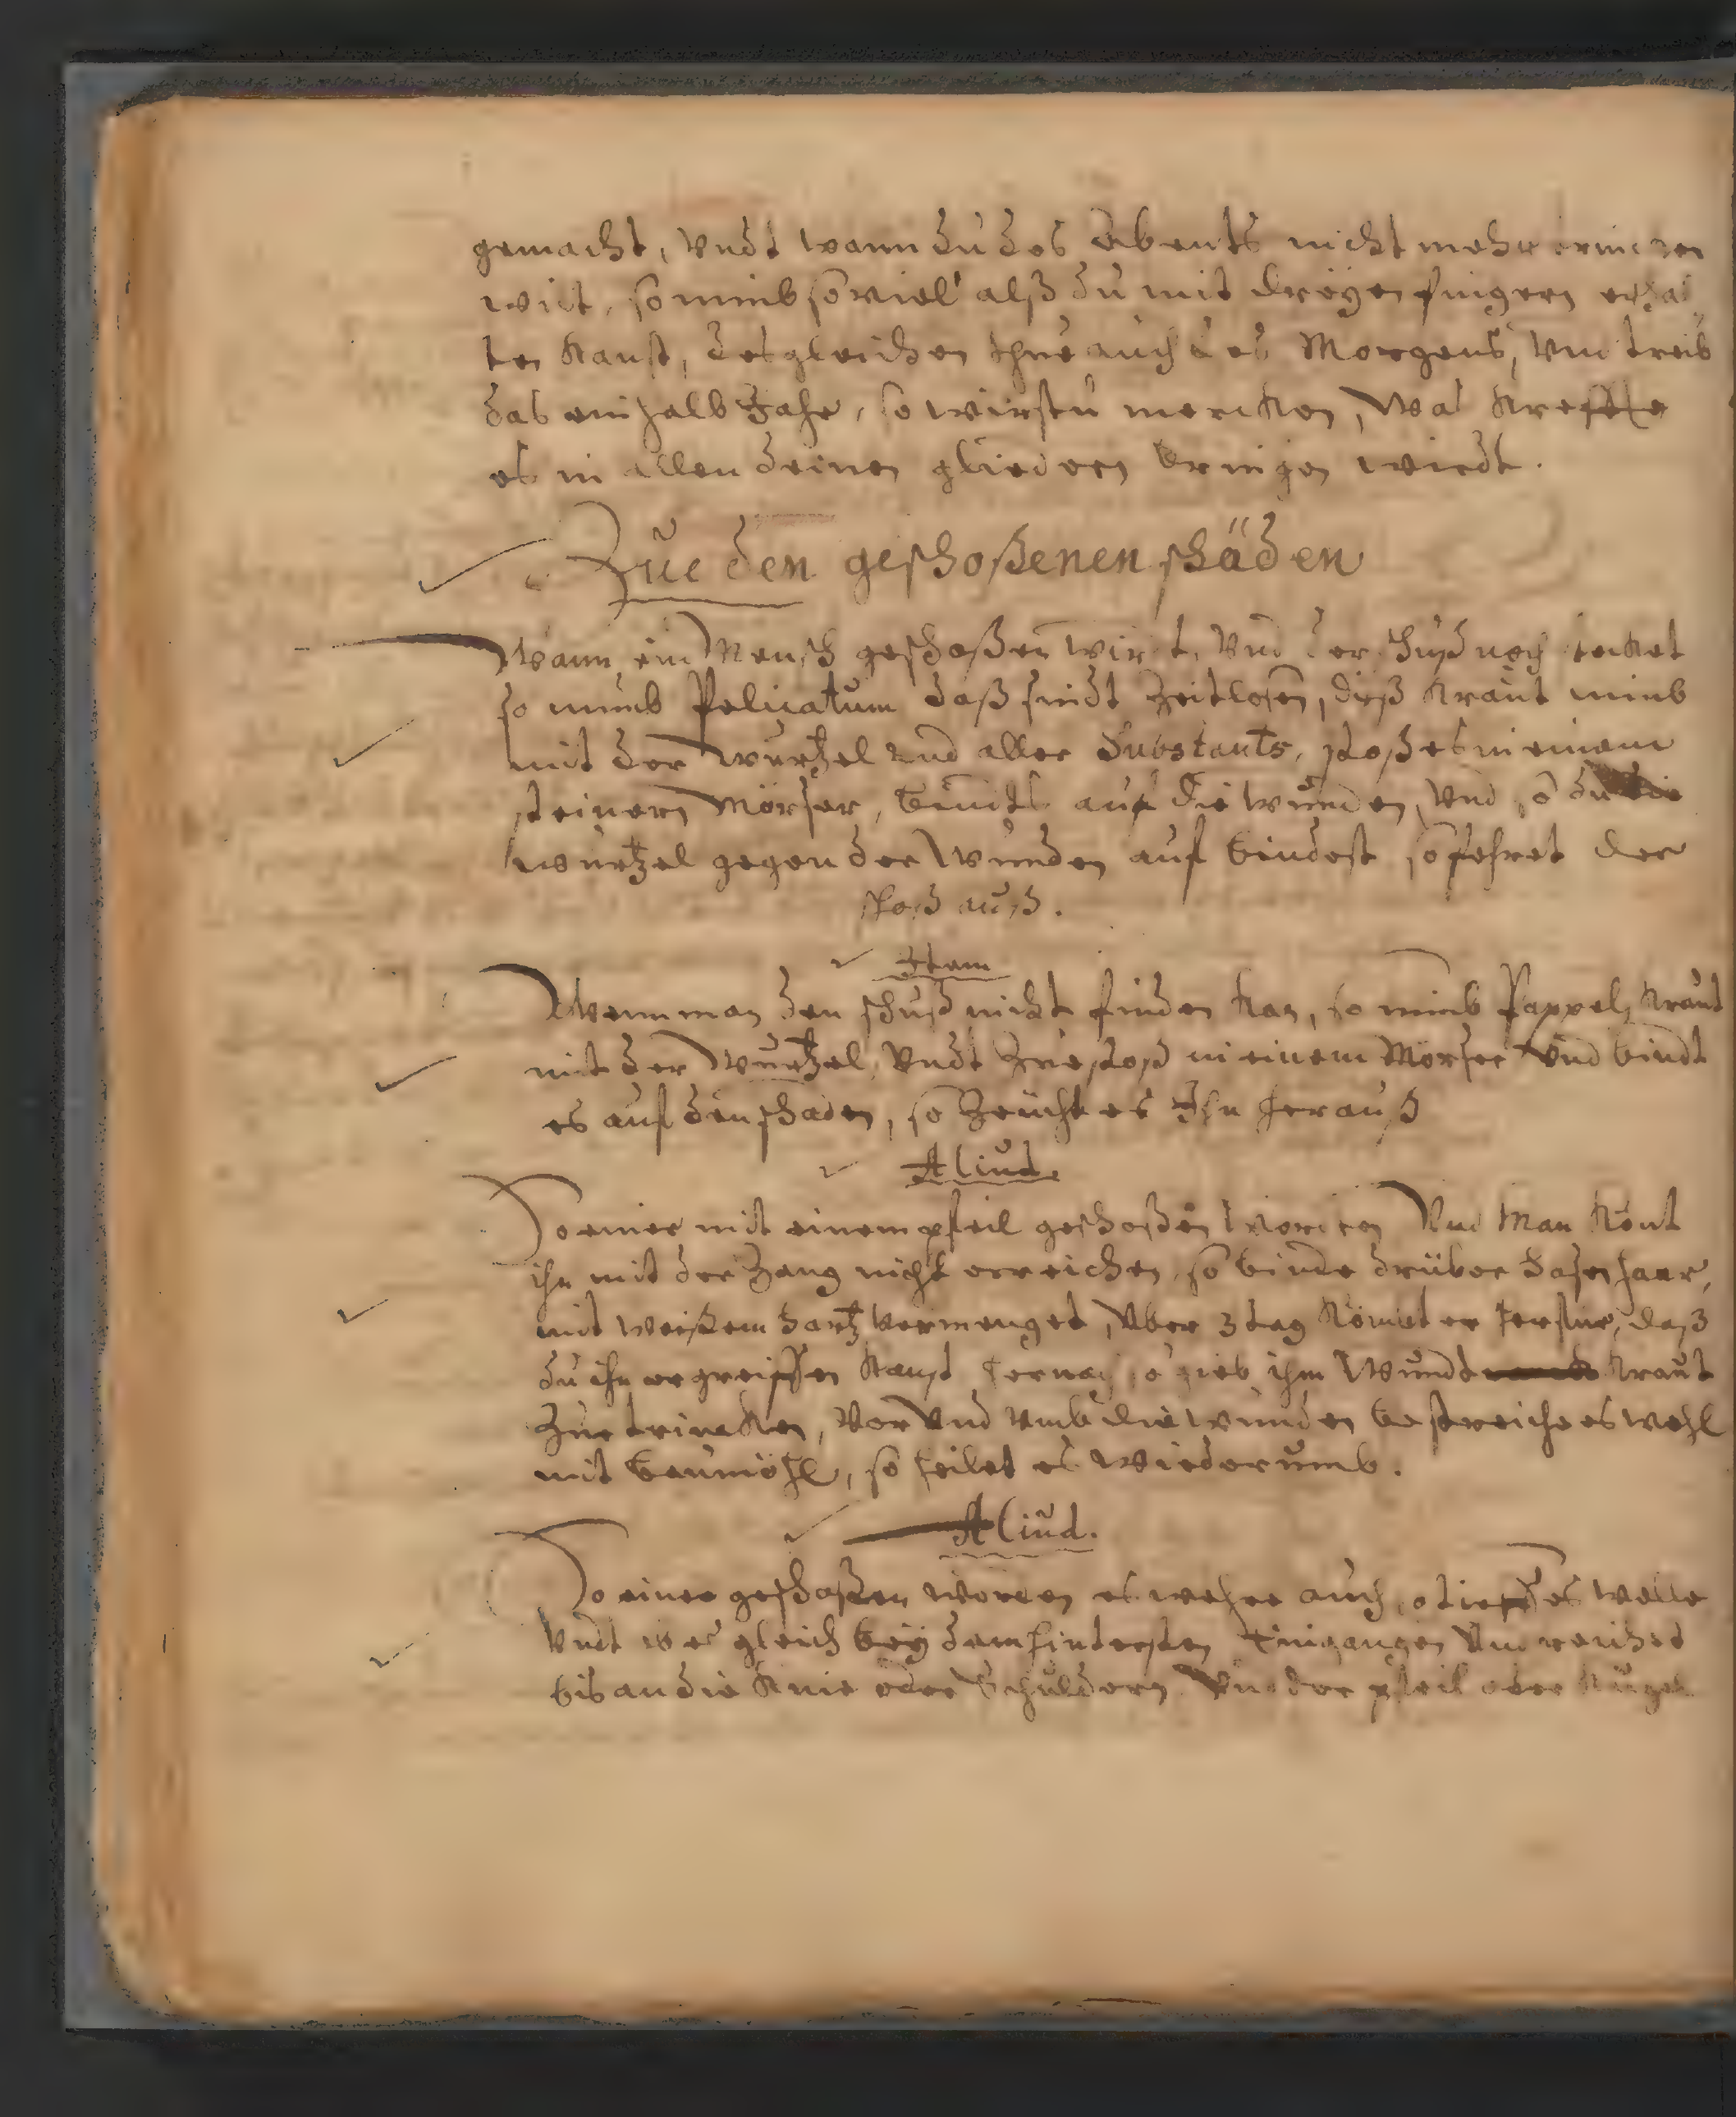 gemacht, Vndt wann du des Abents nicht mehr trincken
wilt, so nimb so viel alß du mit dreyen fingern erhal„
ten kanst, desgleichen thue auch des Morgens, Vnd treib
das ein halb Jahr, so wirstu mercken, Was kreffte
es in allen deinen gliedern bringen wirdt.
Zue den geschoßenen schäden
Wann ein Mensch geschoßen wirt, Vnd der schuß noch stecket
so nimb daß sindt Zeitlosen, dieß Kraut nimb
mit der Wurtzel und aller Substants, stoß es in einem
steinern Mörser, bindts auf die Wunden, Vnd so du die
wurtzel gegen der Wunden auf bindest so fehret der
schoß auß.
Item
Wenn man den schuß nicht finden kan, so nimb Pappeln Kraut
mit der Wurtzel, Vndt Zuestoß in einem Mörser Vnd bindt
es auf den schaden, so Zeücht es Ihn herauß
Aliud.
So einer mit einem pfeil geschoßen worden Vnd Man könt
ihn mit der Zang nicht erreichen, so binde drüber Hasen haar,
mit weißem Hartz Vermenget, Vber 3 tag kömbt er herfür, daß
du ihn ergreiffen kanst hernach so gieb ihm Wundt Kraut
Zue trincken, Vor Vnd Vmb die wunden bestreiche es wohl
mit baumöhl, so heilet es wiederumb.
Aliud.
So einer geschoßen worden es wehre auch so tieff es wolle
Vndt wer gleich bey dem hindersten Eingangen Vnd reichet
bis an die Knie oder Schuldern Vnd der pfeil oder Kugel